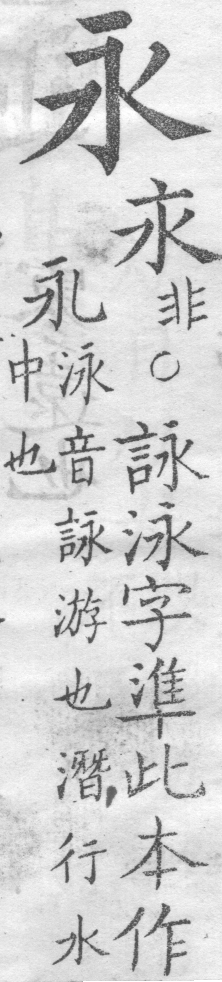 永
非○詠泳字準此本作
泳音詠游也潛行水
中也